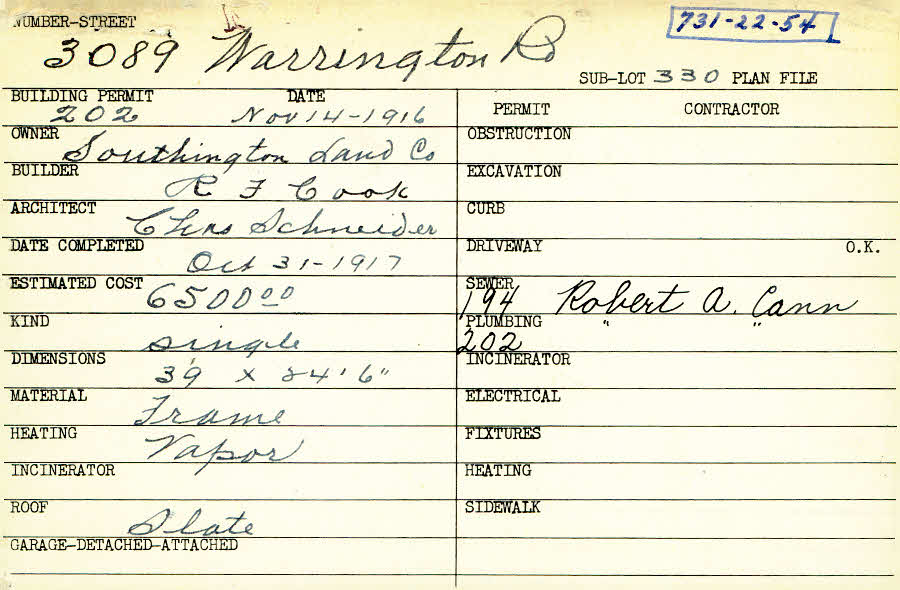 NUMBER-STREET
731-22-54
3089 Warrington Rd
SUB-LOT 330 PLAN FILE
BUILDING PERMIT DATE
202 Nov 14-1916
PERMIT CONTRACTOR
OWNER
Southington Land Co
OBSTRUCTION
BUILDER
R F Cook
EXCAVATION
ARCHITECT
Chas Schneider
CURB
DATE COMPLETED
Oct 31-1917
DRIVEWAY O.K.
ESTIMATED COST
6500 00
SEWER
194 Robert A. Cann
KIND
single
PLUMBING " "
202
DIMENSIONS
39' x 24'6"
INCINERATOR
MATERIAL
Frame
ELECTRICAL
HEATING
Vapor
FIXTURES
INCINERATOR
HEATING
ROOF
Slate
SIDEWALK
GARAGE-DETACHED-ATTACHED